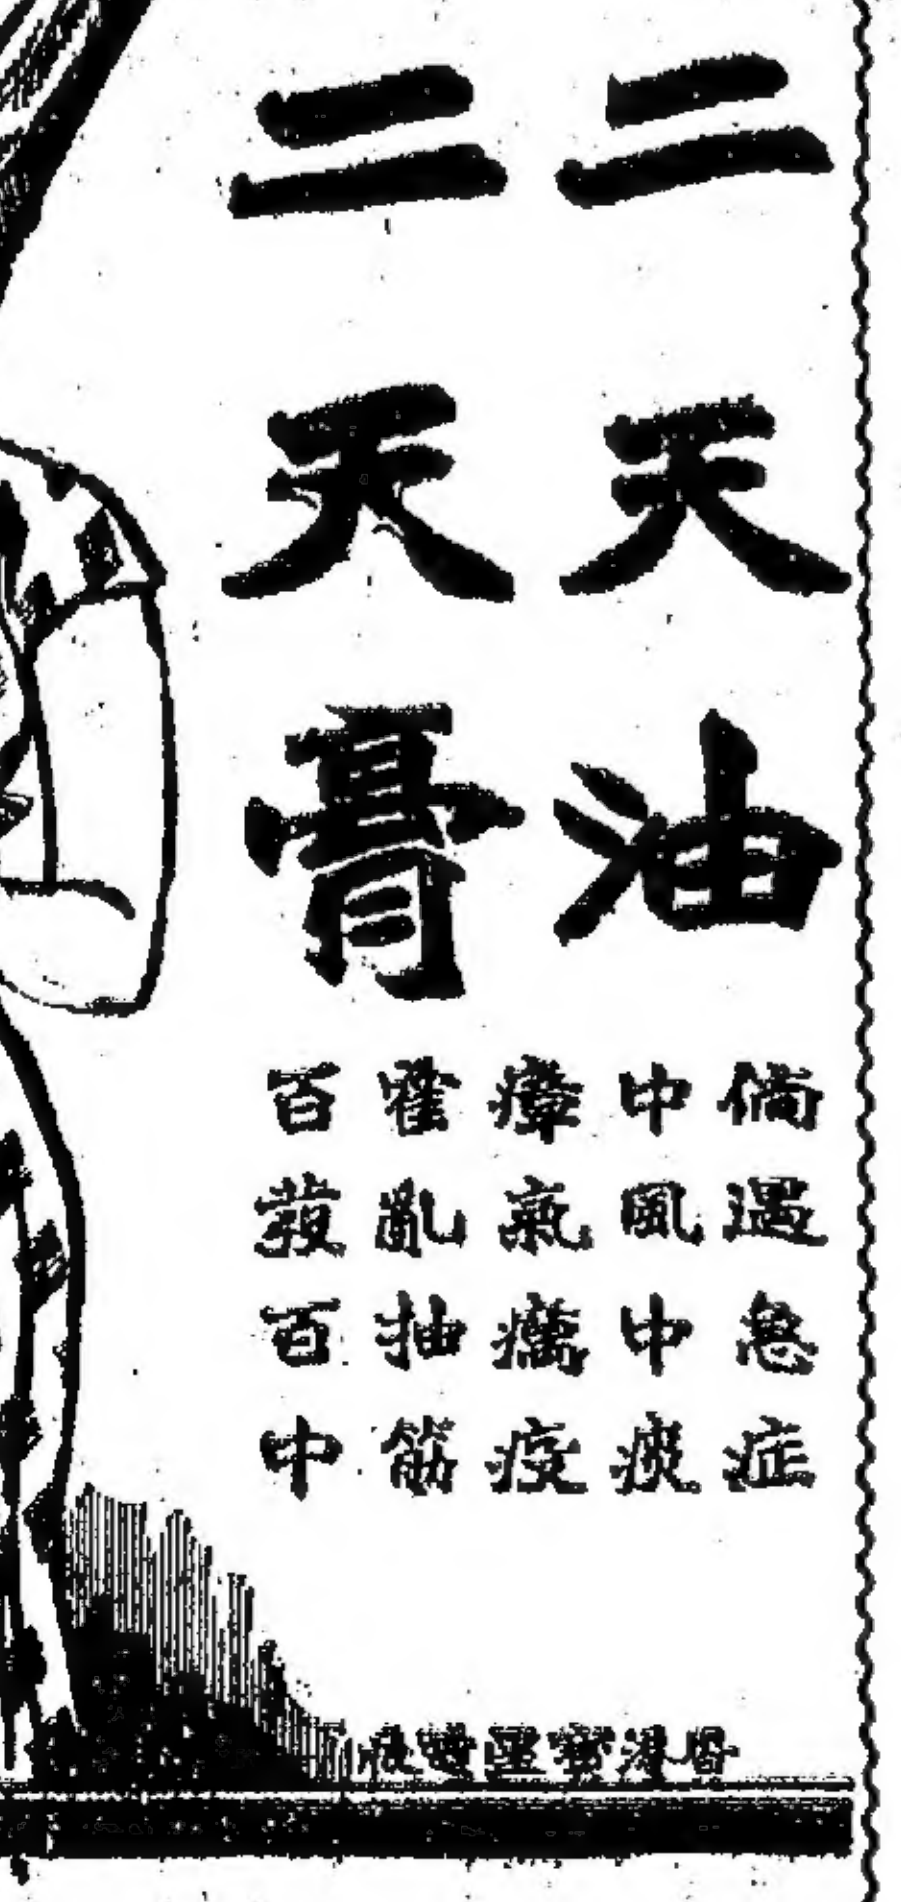 二天油
二天膏
倘遇急症
中風中痰
瘴氣癘疫
霍亂抽筋
百發百中
香港